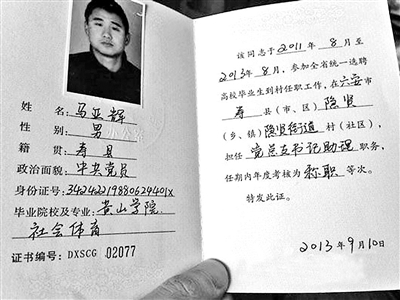 姓名：马亚辉
性别：男
籍贯：寿县
政治面貌：中共党员
身份证号：34242219880624401X
毕业院校及专业：黄山学院
社会体育
证书编号：DXSCG 02077
该同志于2011年8月至
2013年8月，参加全省统一选聘
高校毕业生到村任职工作，在六安市
寿县（市、区）隐贤
（乡、镇）隐贤街道村（社区），
担任党总支书记助理职务，
任期内年度考核为称职等次。
特发此证。
2013年9月10日